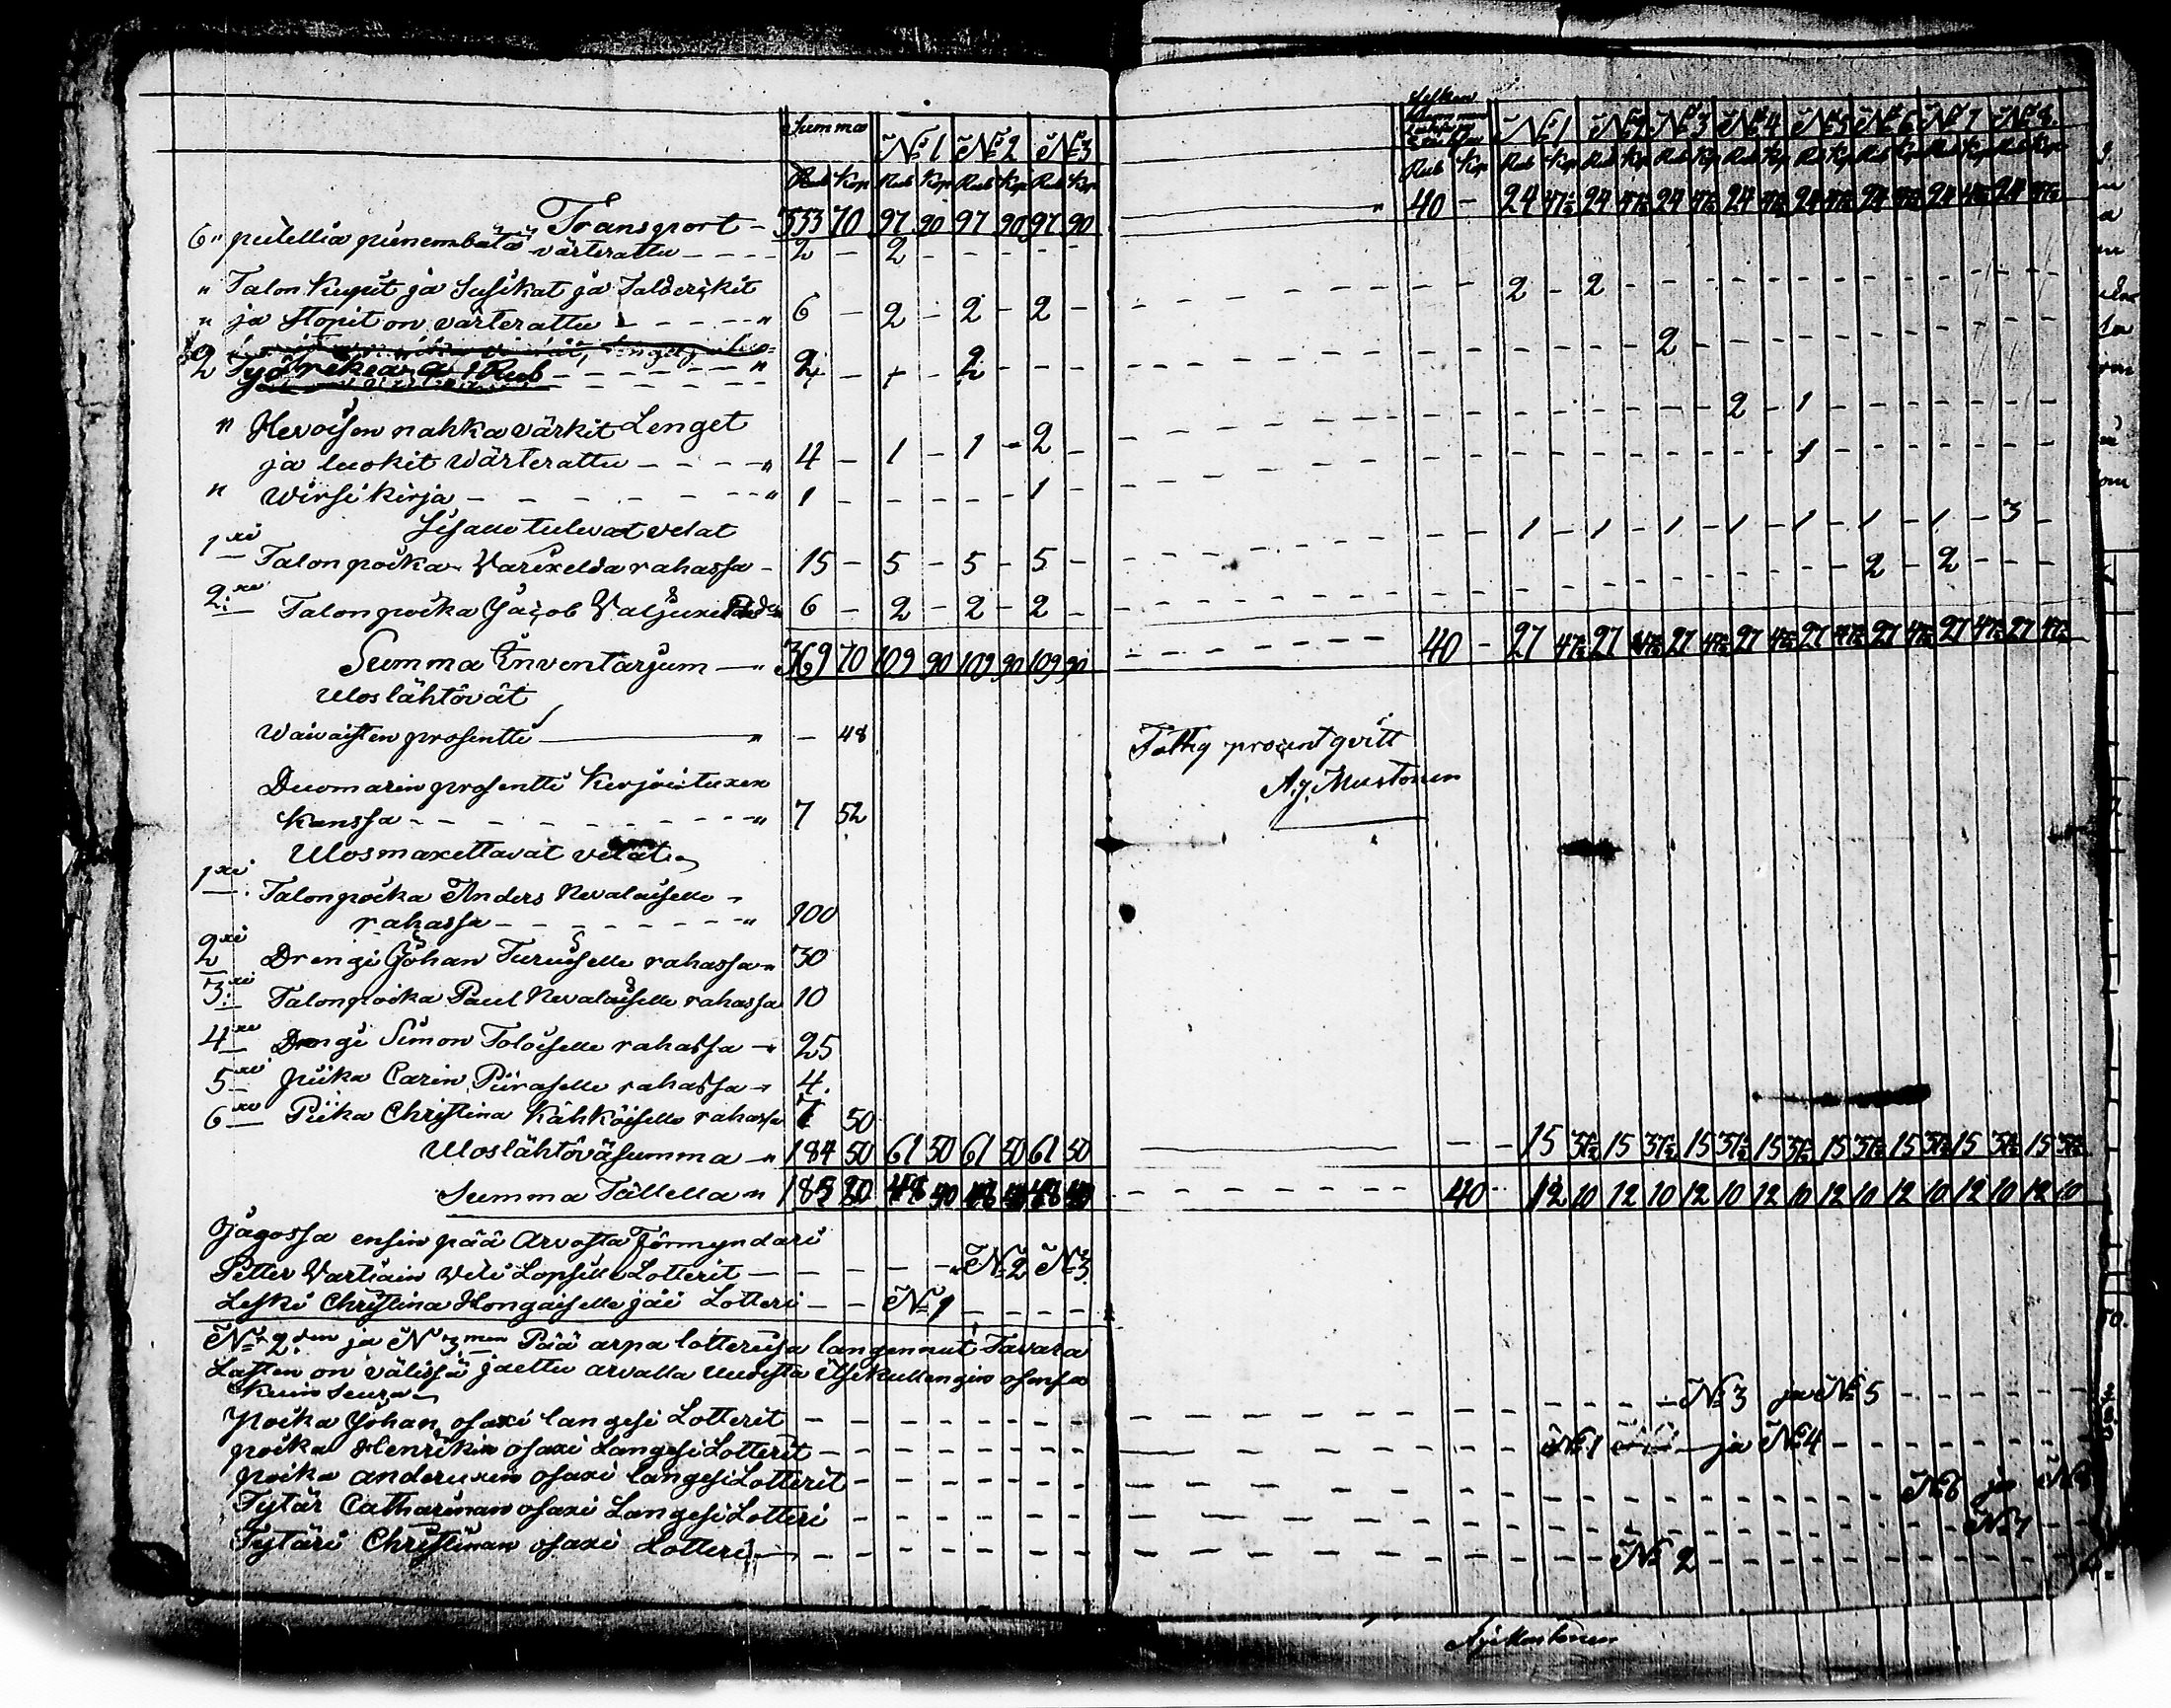 Summa № 1 № 2 № 3
Rub Kop Rub Kop Rub Kop Rub Kop
Transport - 333 70 97 90 97 90 97 90
6 " putellia pienembätä värterattu - - - - 2 - 2 - - - - -
" Talon Kuput ja Lusikat ja Talderikit
" ja Stopit on värterattu - - - - - " 6 - 2 - 2 - 2 -
2 Työ rekeä a 1 Rub - - - - - - "
" Hevoisen nahka värkit Lenget
ja luokit Wärterattu - - - - " 4 - 1 - 1 - 2 -
" Wirsi kirja - - - - - - - - " 1 - - - - - 1 -
Sisälle tulevat velat
1xi Talonpoika Varixelda rahassa - 15 - 5 - 5 - 5 -
2xi Talonpoika Jacob 6 - 2 - 2 - 2 -
Summa Inventarjum - " 369 70 109 90 109 90 109 90
Uloslähtövät
Waivaisten prosentti - " - 48
Duomarin prosentti Kirjoituxen
kanssa - - - - - - - - - - " 7 52
Ulosmaxettavat velat
1xi Talonpoika Anders Nevalaiselle -
rahassa - - - - - - - - " 100
2xi Drengi Johan Turuiselle rahassa " 30
3xi Talonpoika Paul Nevalaiselle rahassa 10
4xi Drengi Simon Toloiselle rahassa - 25
5xi Piika Carin Piiraselle rahassa - 4.
6xi Piika Christina Kähköiselle rahassa 7 50
Uloslähtövä summa - " 184 50 61 50 61 50 61 50
Summa Tällella " 185 20
Ojagossa ensin pää Arvosta Förmyndari
Petter Vartiain veti Lapsille Lotterit - - - - - - № 2 № 3
Leski Christina Hongaiselle jäi Lotteri - - № 1 - - - -
№ 2den ja № 3men Pää arpa lotterissa langennut Tavara
Lasten on välissä jaettu arvalla uudesta itsekullengin osansa
kuin seura
poika Johan osaxi langesi Lotterit - - - - - - - -
poika Henrikin osaxi Langesi Lotterit - - - - - - - -
poika anderuxen osaxi langesi Lotterit - - - - - - -
Tytär Catharinan osaxi Langesi Lotteri - - - - - - -
Tytäri Christinan osaxi Lotteri - - - - - - - -
Lesken
№ 1 № 2 № 3 № 4 № 5 № 6 № 7 № 8
Rub Kop Rub Kop Rub Kop Rub Kop Rub Kop Rub Kop Rub Kop Rub Kop Rub Kop
" 40 - 24 47½ 24 47½ 24 47½ 24 47½ 24 47½ 24 47½ 24 47½ 24 47½
2 - 2
2
2 - 1
1
1 - 1 - 1 - 1 - 1 - 1 - 1 - 3 -
2 - 2
40 - 27 47½ 27 47½ 27 47½ 27 47½ 27 47½ 27 47½ 27 47½ 27 47½
Fattig procent qvitt
A.J. Mustonen
- - 15 37½ 15 37½ 15 37½ 15 37½ 15 37½ 15 37½ 15 37½ 15 37½
40 - 12 10 12 10 12 10 12 10 12 10 12 10 12 10 12 10
№ 3 ja № 5
№ 1 ja № 4
№ 6 ja № 8
№ 7
№ 2